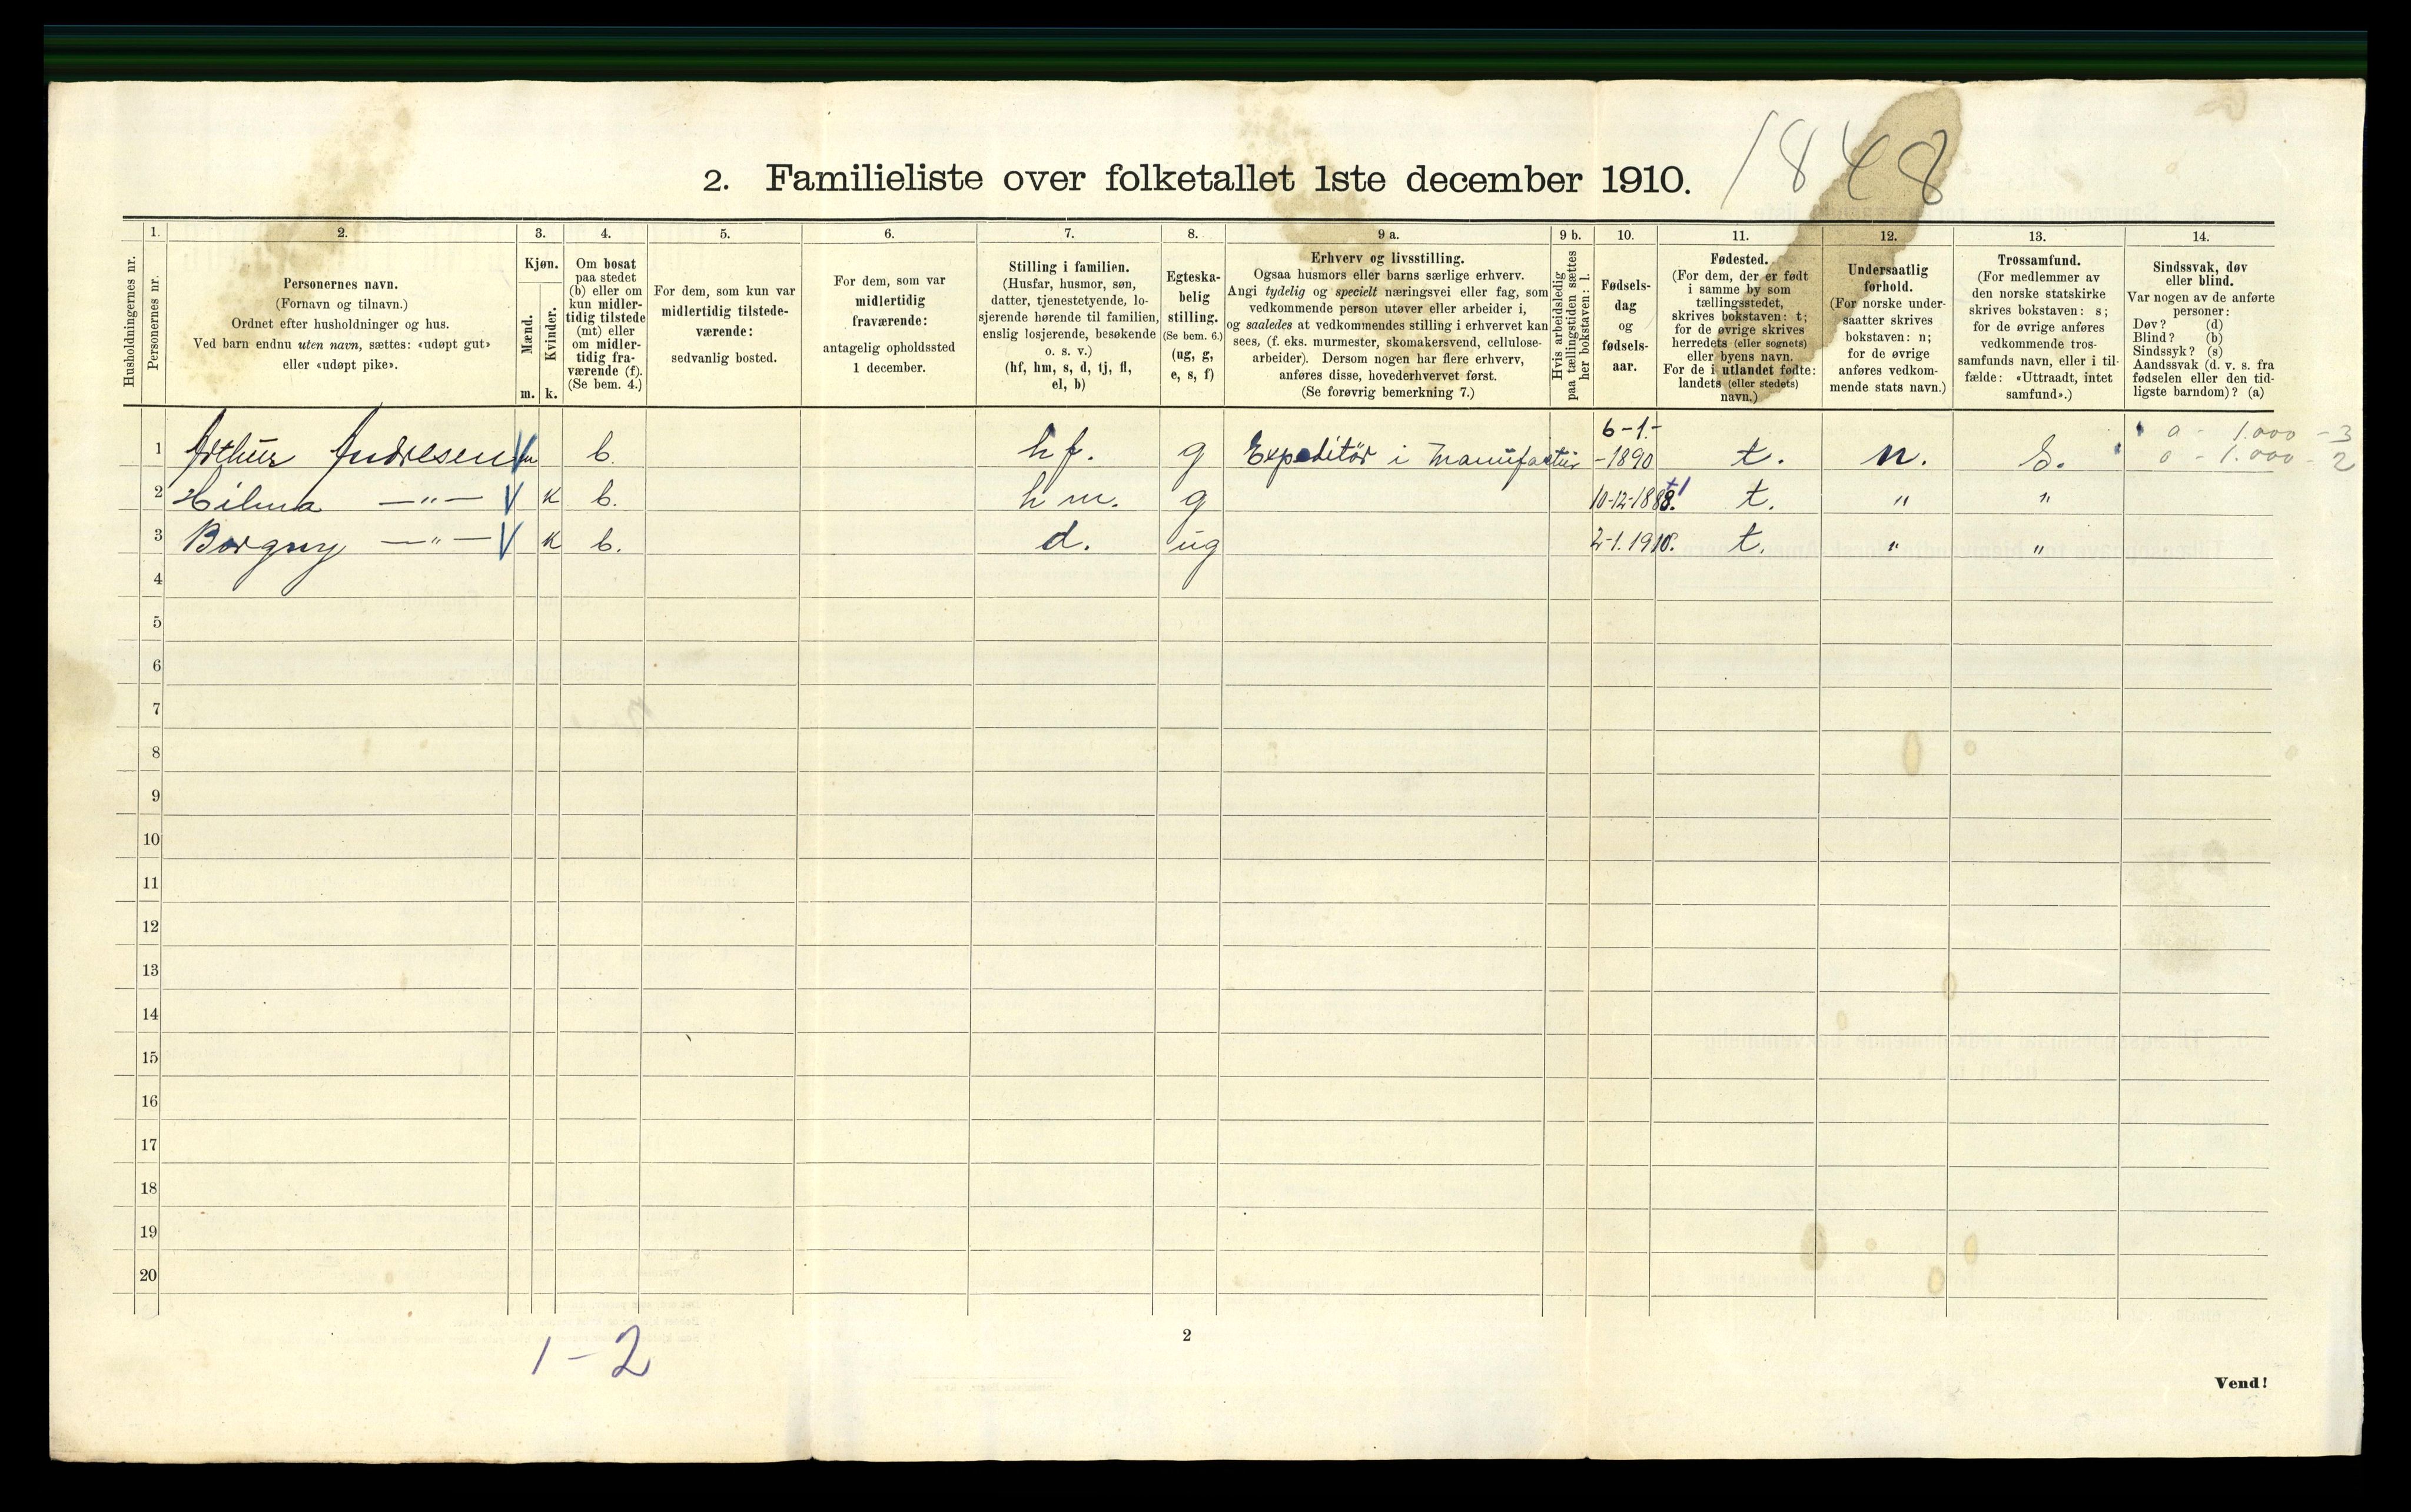 2. Familieliste over folketallet 1ste december 1910. 1848
Husholdningernes nr.
1.
Personernes nr.
2.
Personernes navn.
(Fornavn og tilnavn.)
Ordnet efter husholdninger og hus.
Ved barn endnu uten navn, sættes: «udøpt gut»
eller «udøpt pike».
3.
Kjøn.
Mænd.
Kvinder.
m. k.
4.
Om bosat
paa stedet
(b) eller om
kun midler-
tidig tilstede
(mt) eller
om midler-
tidig fra-
værende (f).
(Se bem. 4.)
5.
For dem, som kun var
midlertidig tilstede-
værende:
sedvanlig bosted.
6.
For dem, som var
midlertidig
fraværende:
antagelig opholdssted
1 december.
7.
Stilling i familien.
(Husfar, husmor, søn,
datter, tjenestetyende, lo-
sjerende hørende til familien,
enslig losjerende, besøkende
o. s. v.)
(hf, hm, s, d, tj, fl,
el, b)
8.
Egteska-
belig
stilling.
(Se bem. 6.)
(ug, g,
e, s, f)
9 a.
Erhverv og livsstilling.
Ogsaa husmors eller barns særlige erhverv.
Angi tydelig og specielt næringsvei eller fag, som
vedkommende person utøver eller arbeider i,
og saaledes at vedkommendes stilling i erhvervet kan
sees, (f. eks. murmester, skomakersvend, cellulose-
arbeider). Dersom nogen har flere erhverv,
anføres disse, hovederhvervet først.
(Se forøvrig bemerkning 7.)
9 b.
Hvis arbeidsledig
paa tællingstiden sættes
her bokstaven: l.
10.
Fødsels-
dag
og
fødsels-
aar.
11.
Fødested.
(For dem, der er født
i samme by som
tællingsstedet,
skrives bokstaven: t;
for de øvrige skrives
herredets (eller sognets)
eller byens navn.
For de i utlandet fødte:
landets (eller stedets)
navn.)
12.
Undersaatlig
forhold.
(For norske under-
saatter skrives
bokstaven: n;
for de øvrige
anføres vedkom-
mende stats navn.)
13.
Trossamfund.
(For medlemmer av
den norske statskirke
skrives bokstaven: s;
for de øvrige anføres
vedkommende tros-
samfunds navn, eller i til-
fælde: «Uttraadt, intet
samfund».)
14.
Sindssvak, døv
eller blind.
Var nogen av de anførte
personer:
Døv? (d)
Blind? (b)
Sindssyk? (s)
Aandssvak (d. v. s. fra
fødselen eller den tid-
ligste barndom)? (a)
1 Arthur Andresen m b. hf. g Expeditör i Manufaktur 6-1.-
-1890 t. n. S. a - 1.000 - 3
o - 1.000 - 2
2 Hilma —"— k b. hm. g 10-12-1888. t. " "
3 Borgny —"— k b. d. ug 2-1.1910. t. " "
4
5
6
7
8
9
10
11
12
13
14
15
16
17
18
19
20
1-2
2
Vend!